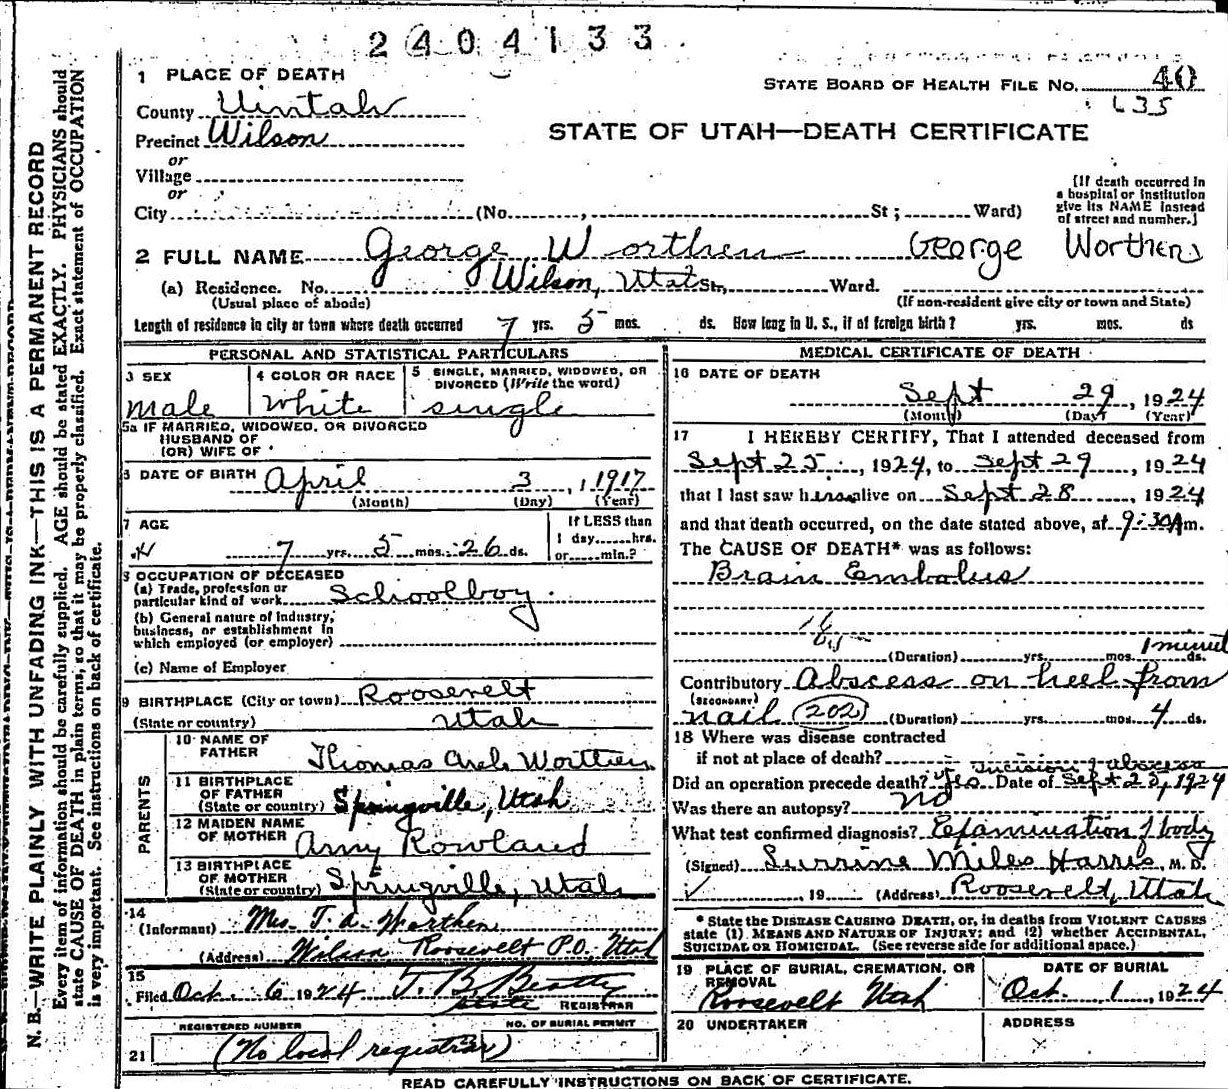 2404133
1 PLACE OF DEATH
STATE BOARD OF HEALTH FILE NO. 40
County Uintah
635
Precinct Wilson
STATE OF UTAH—DEATH CERTIFICATE
or
Village
or
City (No. , St ; Ward)
[If death occurred in
a hospital or institution
give its NAME instead
of street and number.]
2 FULL NAME George Worthen George Worthen
(a) Residence. No. Wilson, Utah St., Ward.
(Usual place of abode) (If non-resident give city or town and State)
Length of residence in city or town where death occurred 7 yrs. 5 mos. ds. How long in U. S., if of foreign birth? yrs. mos. ds
PERSONAL AND STATISTICAL PARTICULARS
3 SEX
male
4 COLOR OR RACE
White
5 SINGLE, MARRIED, WIDOWED, OR
DIVORCED (Write the word)
single
5a IF MARRIED, WIDOWED, OR DIVORCED
HUSBAND OF
(OR) WIFE OF
6 DATE OF BIRTH April 3, 1917
(Month) (Day) (Year)
7 AGE
7 yrs. 5 mos. 26 ds.
If LESS than
1 day hrs.
or min.?
8 OCCUPATION OF DECEASED
(a) Trade, profession or
particular kind of work Schoolboy
(b) General nature of industry,
business, or establishment in
which employed (or employer)
(c) Name of Employer
9 BIRTHPLACE (City or town) Roosevelt
(State or country) Utah
PARENTS
10 NAME OF
FATHER Thomas Worthen
11 BIRTHPLACE
OF FATHER
(State or country) Springville, Utah
12 MAIDEN NAME
OF MOTHER Amy Rowland
13 BIRTHPLACE
OF MOTHER
(State or country) Springville, Utah
14
(Informant) Mrs. T. A. Worthen
(Address) Wilson Roosevelt P.O., Utah
15
Filed Oct. 6 1924 T. B. Beatty
State REGISTRAR
REGISTERED NUMBER NO. OF BURIAL PERMIT
21 (No local registrar)
MEDICAL CERTIFICATE OF DEATH
16 DATE OF DEATH
Sept 29, 1924
(Month) (Day) (Year)
17 I HEREBY CERTIFY, That I attended deceased from
Sept 25, 1924, to Sept 29, 1924
that I last saw him alive on Sept 28, 1924
and that death occurred, on the date stated above, at 9:30 A m.
The CAUSE OF DEATH* was as follows:
Brain Embolus
(Duration) yrs. mos. 1 minute ds.
Contributory Abscess on heel from
(SECONDARY)
nail (202) (Duration) yrs. mos. 4 ds.
18 Where was disease contracted
if not at place of death?
incision of abscess
Did an operation precede death? Yes Date of Sept 25, 1924
Was there an autopsy? No
What test confirmed diagnosis? Examination of body
(Signed) Miles Harris M. D.
, 19 (Address) Roosevelt, Utah
* State the DISEASE CAUSING DEATH, or, in deaths from VIOLENT CAUSES
state (1) MEANS AND NATURE OF INJURY; and (2) whether ACCIDENTAL,
SUICIDAL OR HOMICIDAL. (See reverse side for additional space.)
19 PLACE OF BURIAL, CREMATION, OR
REMOVAL
Roosevelt Utah
DATE OF BURIAL
Oct. 1, 1924
20 UNDERTAKER
ADDRESS
READ CAREFULLY INSTRUCTIONS ON BACK OF CERTIFICATE.
N. B.—WRITE PLAINLY WITH UNFADING INK—THIS IS A PERMANENT RECORD
Every item of information should be carefully supplied. AGE should be stated EXACTLY. PHYSICIANS should
state CAUSE OF DEATH in plain terms, so that it may be properly classified. Exact statement of OCCUPATION
is very important. See instructions on back of certificate.